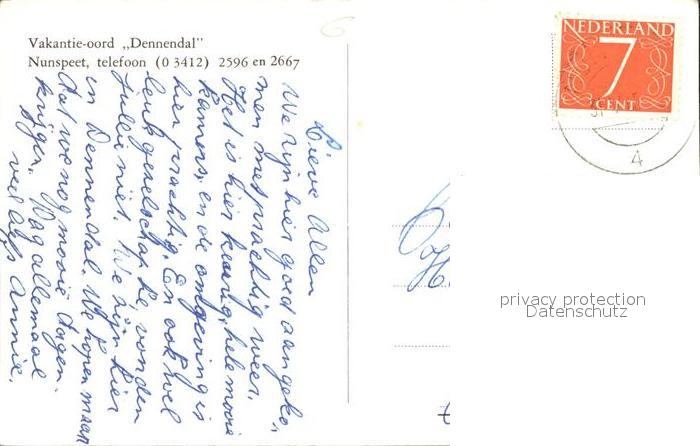 Vakantie-oord „Dennendal”
Nunspeet, telefoon (0 3412) 2596 en 2667
Lieve Allen
We zijn hier goed aangeko-
men met prachtig weer.
Het is hier keurig, hele mooie
kamers, en de omgeving is
hier prachtig. En ook wel
leuk geselschap
jullie niet. We zijn hier
in Dennendal. We hopen maar
dat we nog mooie dagen
krijgen. Dag allemaal
veel liefs Annie.
NEDERLAND
7
CENT
4
privacy protection
Datenschutz